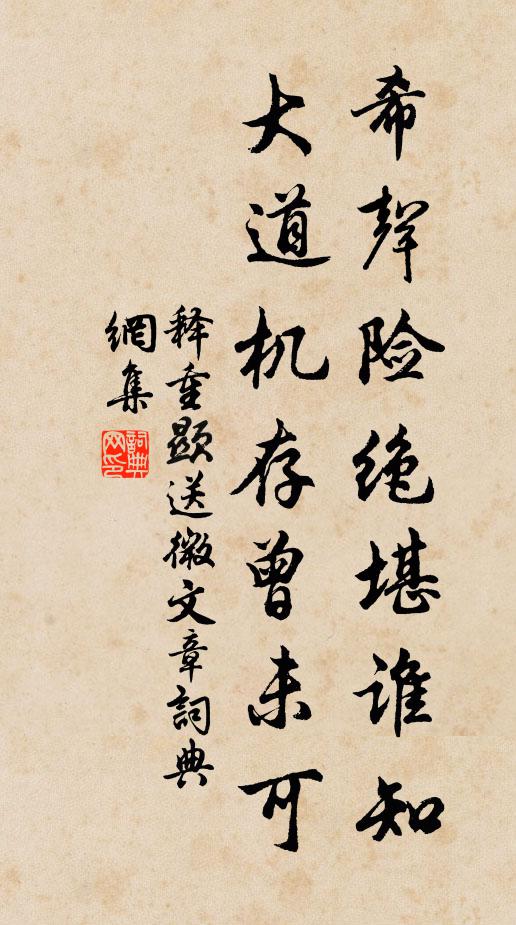 希聲险绝堪谁知
大道机存曾未可
释重显送微文章詞典
網集
詞典
网印